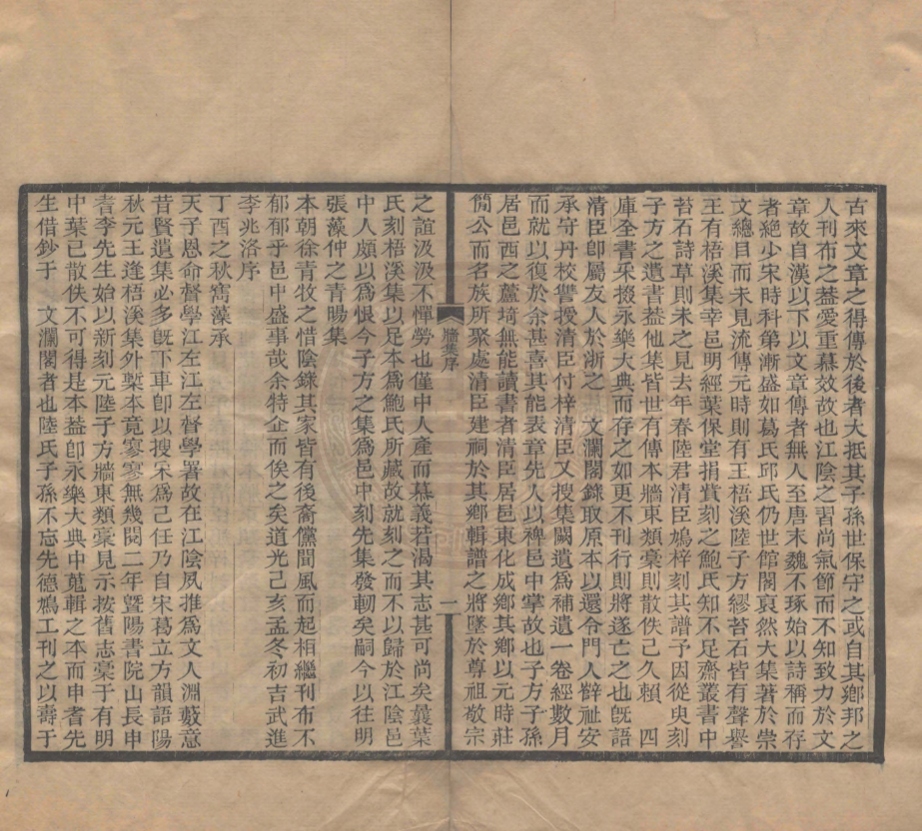 古來文章之得傳於後者大抵其子孫世保守之或自其鄉邦之
人刊布之葢愛重慕效故也江陰之習尚氣節而不知致力於文
章故自漢以下以文章傳者無人至唐末魏不琢始以詩稱而存
者絕少宋時科第漸盛如葛氏邱氏仍世館閣裒然大集著於崇
文總目而未見流傳元時則有王梧溪陸子方繆苔石皆有聲譽
王有梧溪集幸邑明經葉保堂捐貲刻之鮑氏知不足齋叢書中
苔石詩草則未之見去年春陸君清臣鳩梓刻其譜予因從臾刻
子方之遺書葢他集皆世有傳本牆東類稾則散佚已久賴 四
庫全書采掇永樂大典而存之如更不刊行則將遂亡之也旣語
清臣卽屬友人於浙之 文瀾閣錄取原本以還令門人辥祉安
承守丹校讐授清臣付梓清臣又搜集闕遺爲補遺一卷經數月
而就以復於余甚喜其能表章先人以裨邑中掌故也子方子孫
居邑西之蘆埼無能讀書者清臣居邑東化成鄉其鄉以元時莊
簡公而名族所聚處清臣建祠於其鄉輯譜之將墜於尊祖敬宗
牆東序
一
之誼汲汲不憚勞也僅中人產而慕義若渴其志甚可尚矣曩葉
氏刻梧溪集以足本爲鮑氏所藏故就刻之而不以歸於江陰邑
中人頗以爲恨今子方之集爲邑中刻先集發軔矣嗣今以往明
張藻仲之青暘集
本朝徐青牧之惜陰錄其家皆有後裔儻聞風而起相繼刊布不
郁郁乎邑中盛事哉余特企而俟之矣道光己亥孟冬初吉武進
李兆洛序
丁酉之秋寯藻承
天子恩命督學江左江左督學署故在江陰夙推爲文人淵藪意
昔賢遺集必多旣下車卽以搜采爲己任乃自宋葛立方韻語陽
秋元王逢梧溪集外槧本竟寥寥無幾閱二年暨陽書院山長申
耆李先生始以新刻元陸子方牆東類稾見示按舊志稾于有明
中葉已散佚不可得是本葢卽永樂大典中蒐輯之本而申耆先
生借鈔于 文瀾閣者也陸氏子孫不忘先德鳩工刊之以壽于